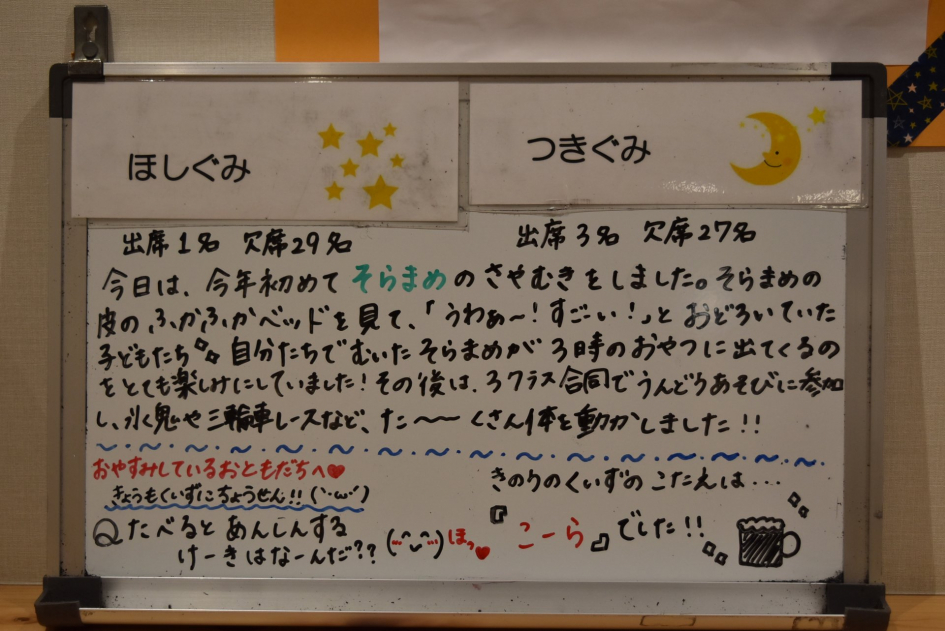 ほしぐみ
つきぐみ
出席1名 欠席29名
出席3名 欠席27名
今日は、今年初めて そらまめ の さやむき をしました。そらまめの
皮の ふかふかベッドを見て、「うわぁ〜!すご〜い!」と おどろいていた
子どもたち 自分たちで むいた そらまめが 3時の おやつに 出てくるの
をとても楽しみにしていました!その後は、3クラス合同で うんどうあそびに参加
し、氷鬼や三輪車レースなど、た〜〜くさん体を動かしました!!
おやすみしているおともだちへ♥
きょうもくいずにちょうせん!!(`・ω・´)
Q たべると あんしんする
けーきはなーんだ??
ほっ♥
きのうのくいずの こたえは...
『こーら』でした!!